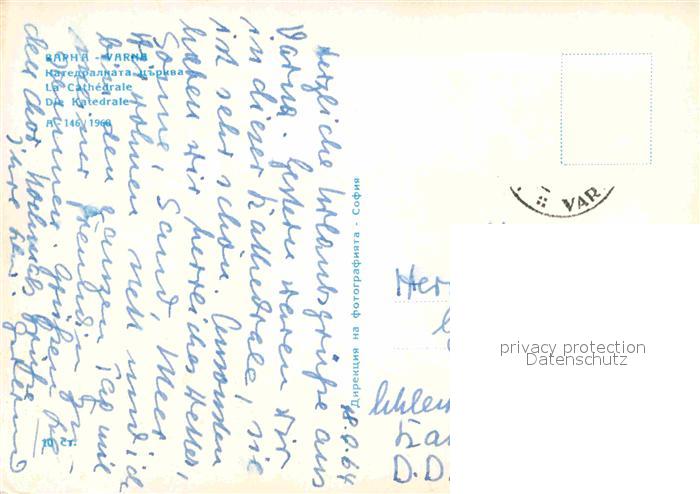 ВАРНА - VARNA
Катедралната църква
La Cathédrale
Die Katedrale
A - 146/1960
10 ст.
Дирекция на фотографията - София
Herzliche Urlaubsgrüße aus
Varna. Gestern waren wir
in dieser Kathedrale, sie
ist sehr schön. Ansonsten
haben wir herrliches Wetter,
Sonne, Sand, Meer
wohnen nett und ich
bin den ganzen Tag mit
meiner Freundin zu-
sammen. Grüßen Sie
den Chor nochmals
18.9.64
VAR
Her
D.D.
privacy protection
Datenschutz